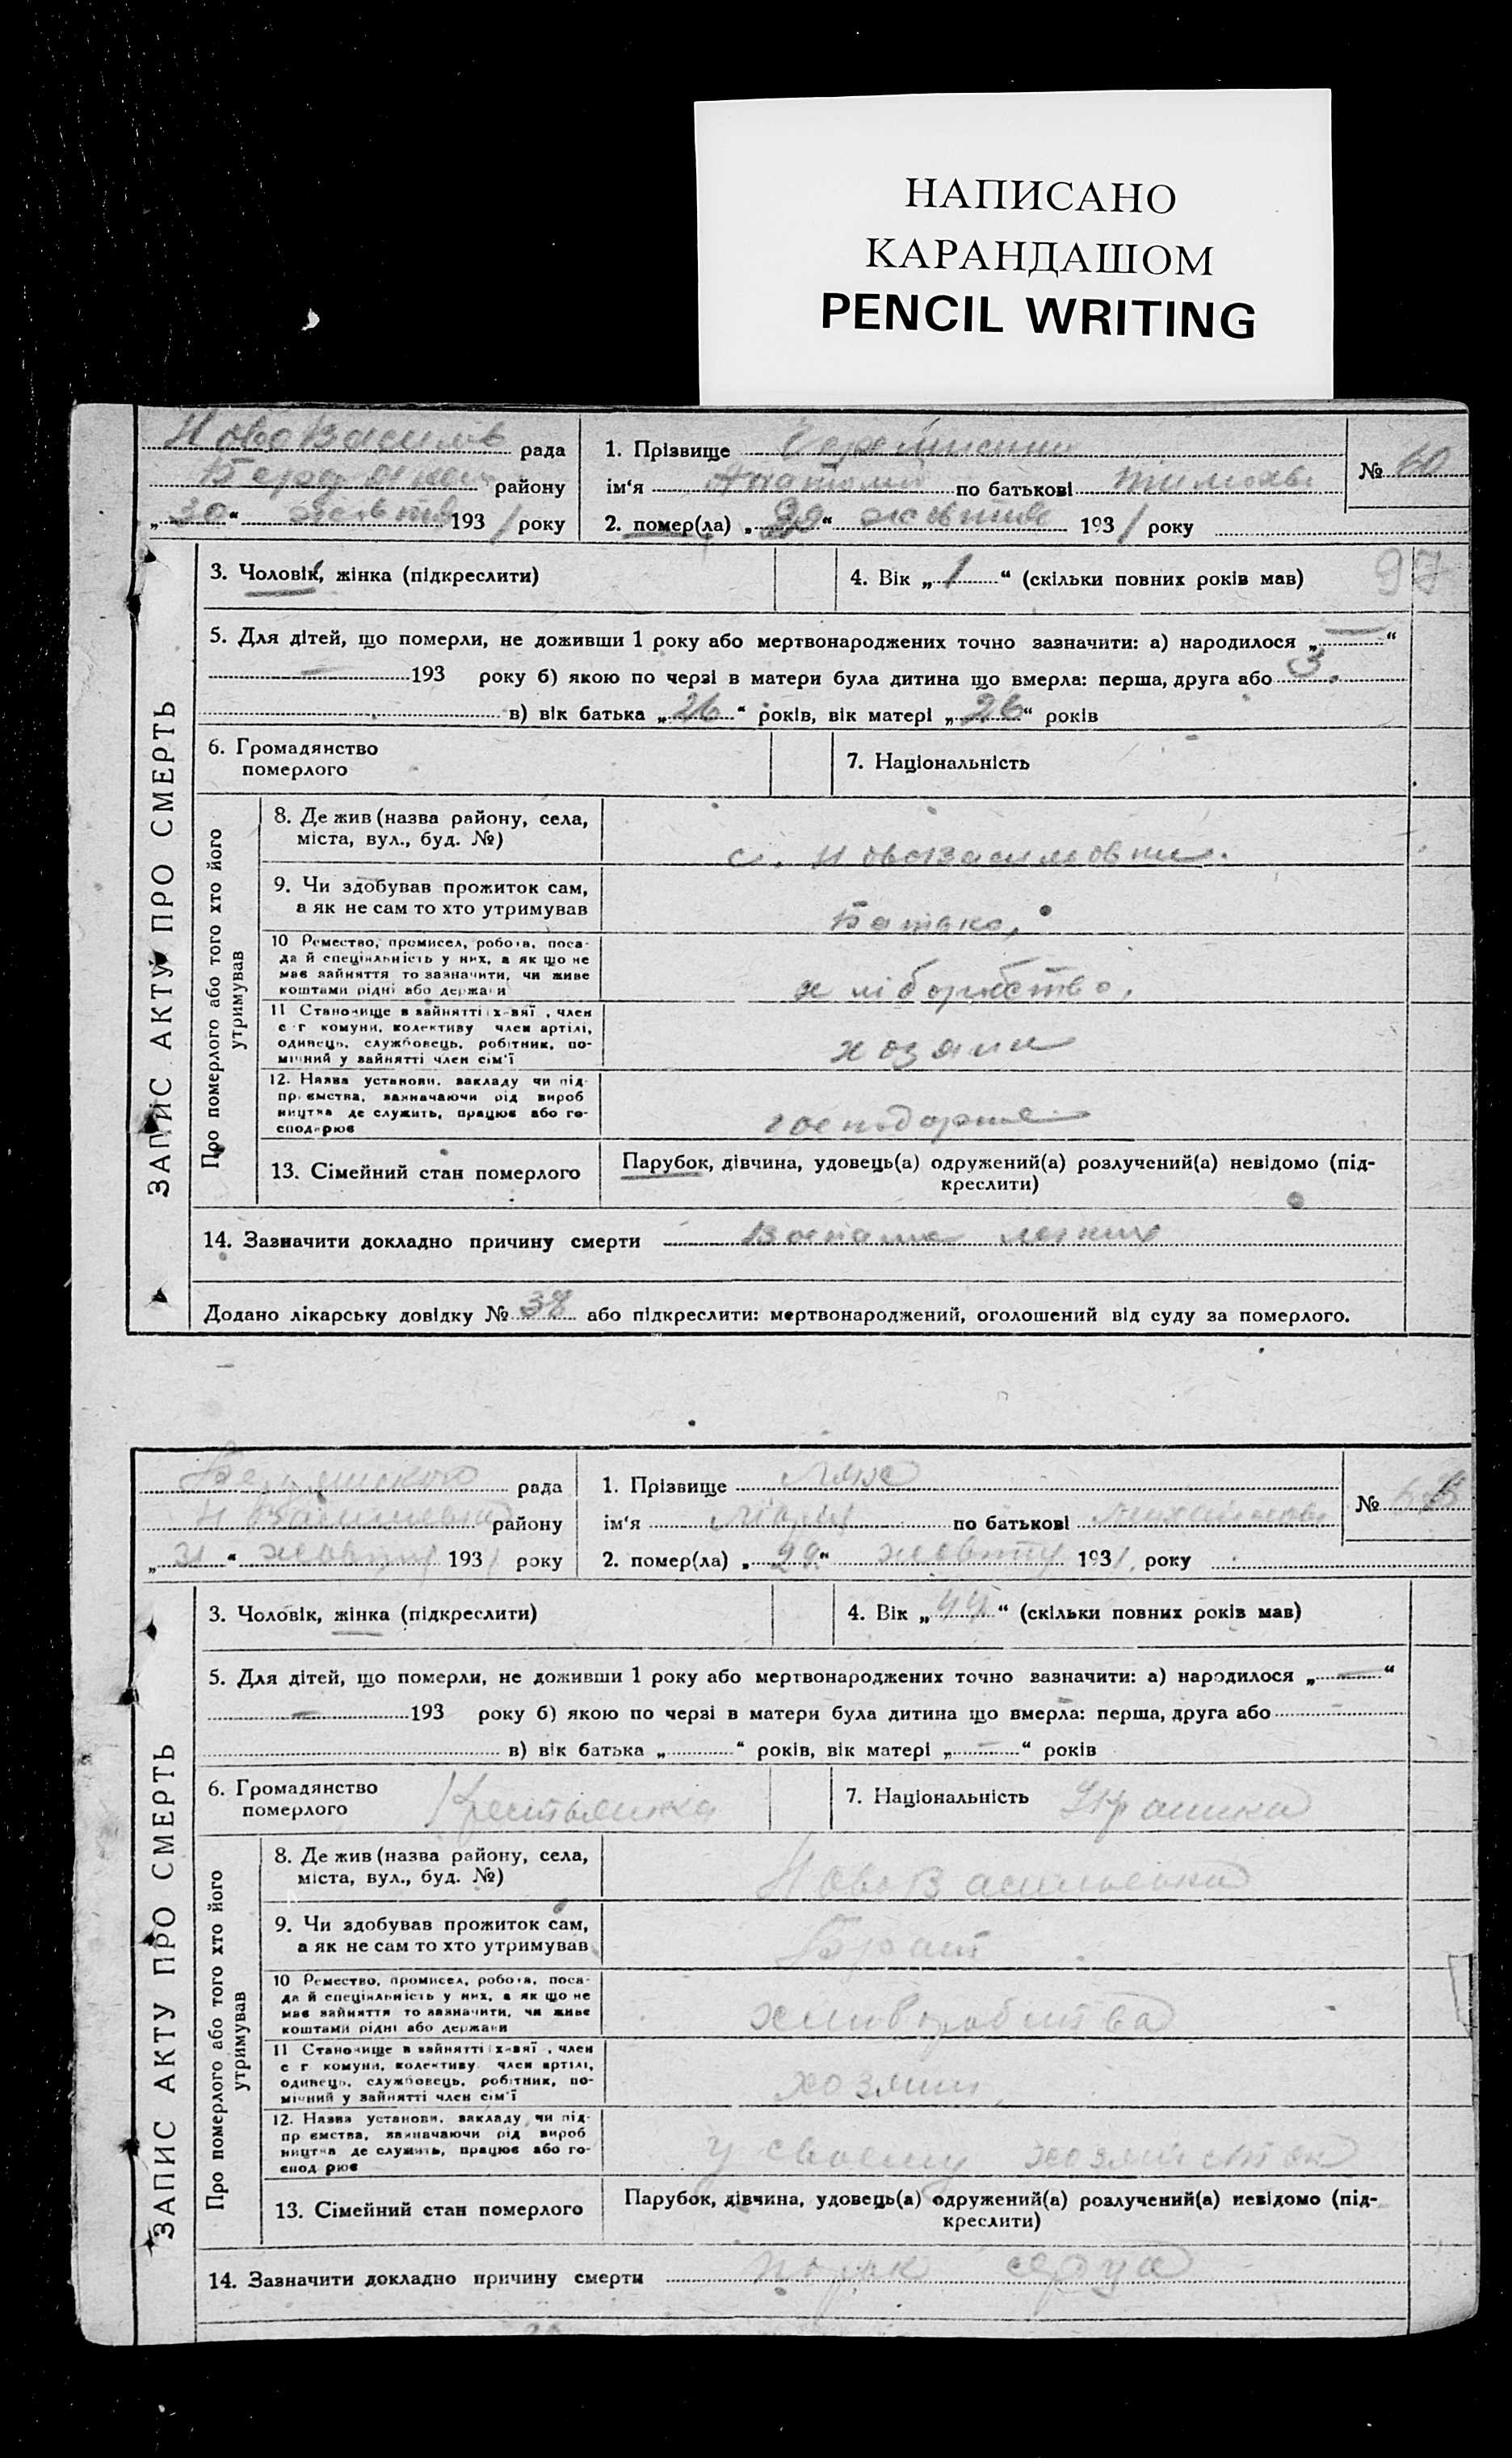 НАПИСАНО
КАРАНДАШОМ
PENCIL WRITING
НовоВасилів рада
району
„30“ жовтня 1931 року
1. Прізвище
ім‘я Анатолий по батькові
2. помер(ла) „ “ жовтня 1931 року
№ 60
97
ЗАПИС АКТУ ПРО СМЕРТЬ
3. Чоловік, жінка (підкреслити)
4. Вік „1“ (скільки повних років мав)
5. Для дітей, що померли, не доживши 1 року або мертвонароджених точно зазначити: а) народилося „—“
— 193 року б) якою по черзі в матери була дитина що вмерла: перша, друга або 3.
в) вік батька „26“ років, вік матері „26“ років
6. Громадянство
померлого
7. Національність
Про померлого або того хто його
утримував
8. Де жив (назва району, села,
міста, вул., буд. №)
с. Нововасиловка.
9. Чи здобував прожиток сам,
а як не сам то хто утримував
Батько,
10 Ремество, промисел, робота, поса-
да й спеціяльність у них, а як що не
має зайняття то зазначити, чи живе
коштами рідні або держави
хліборобство,
11 Становище в зайнятті х-вяї , член
с г комуни, колективу член артілі,
одинець, службовець, робітник, по-
мічний у зайнятті член сім'ї
хозяин
12. Назва установи, закладу чи під-
пр ємства, зазначаючи рід вироб
ництва де служить, працює або го-
сподарює
13. Сімейний стан померлого
Парубок, дівчина, удовець(а) одружений(а) розлучений(а) невідомо (під-
креслити)
14. Зазначити докладно причину смерти легких
Додано лікарську довідку № 38 або підкреслити: мертвонароджений, оголошений від суду за померлого.
рада
району
„31“ 193 року
1. Прізвище Лях
ім‘я Мария по батькові
2. помер(ла) „29“ жовтня 1931. року
№
ЗАПИС АКТУ ПРО СМЕРТЬ
3. Чоловік, жінка (підкреслити)
4. Вік „44“ (скільки повних років мав)
5. Для дітей, що померли, не доживши 1 року або мертвонароджених точно зазначити: а) народилося „—“
— 193 року б) якою по черзі в матери була дитина що вмерла: перша, друга або
в) вік батька „ “ років, вік матері „—“ років
6. Громадянство
померлого
Крестьянка
7. Національність
Про померлого або того хто його
утримував
8. Де жив (назва району, села,
міста, вул., буд. №)
НовоВасильевка
9. Чи здобував прожиток сам,
а як не сам то хто утримував
Брат
10 Ремество, промисел, робота, поса-
да й спеціяльність у них, а як що не
має зайняття то зазначити, чи живе
коштами рідні або держави
11 Становище в зайнятті х-вяї , член
с г комуни, колективу член артілі,
одинець, службовець, робітник, по-
мічний у зайнятті член сім'ї
хозяин
12. Назва установи, закладу чи під-
пр ємства, зазначаючи рід вироб
ництва де служить, працює або го-
спод рює
у своему
13. Сімейний стан померлого
Парубок, дівчина, удовець(а) одружений(а) розлучений(а) невідомо (під-
креслити)
14. Зазначити докладно причину смерти порок серца